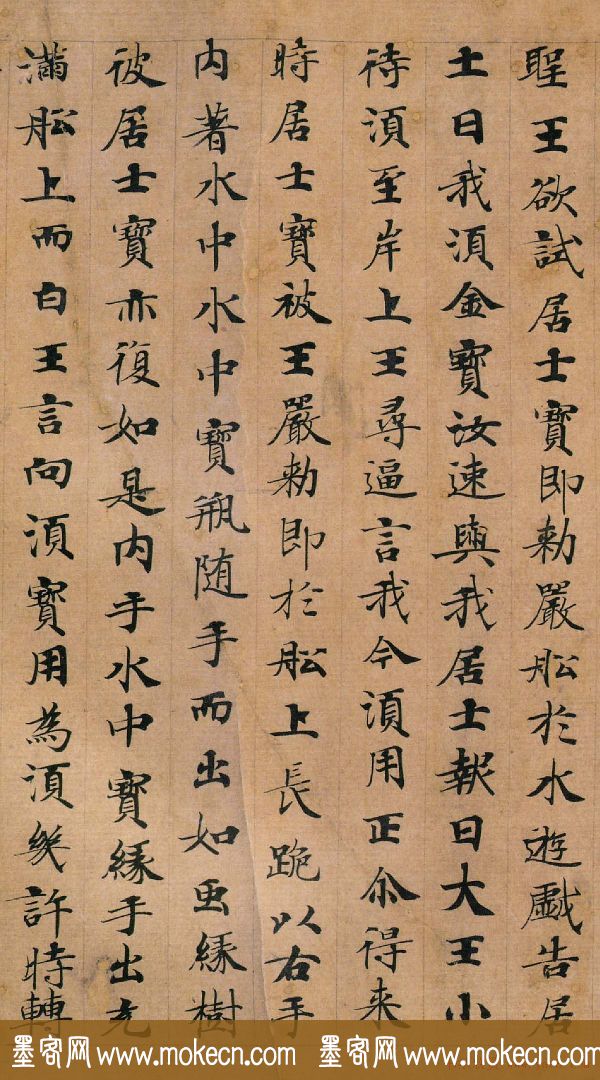 聖王欲試居士寶即勑嚴舩於水遊戯告居
士曰我須金寶汝速與我居士報曰大王小
待須至岸上王尋逼言我今須用正尒得来
時居士寶被王嚴勑即於舩上長跪以右手
内著水中水中寶瓶随手而出如虫縁樹
彼居士寶亦復如是内手水中寶縁手出充
滿舩上而白王言向須寶用為須幾許時轉
墨客网 www.mokecn.com 墨客网 www.mokecn.com